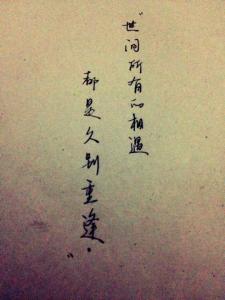 "世间所有的相遇
都是久别重逢。"